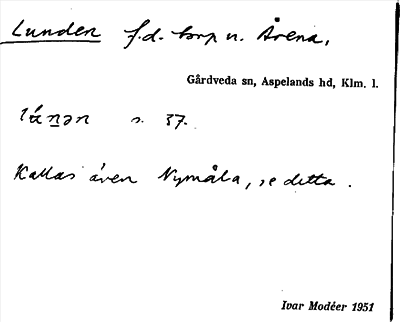 Lunden f.d. torp u. Årena,
Gårdveda sn, Aspelands hd, Klm. l.
s. 37.
Kallas även Nymåla, se detta.
Ivar Modéer 1951